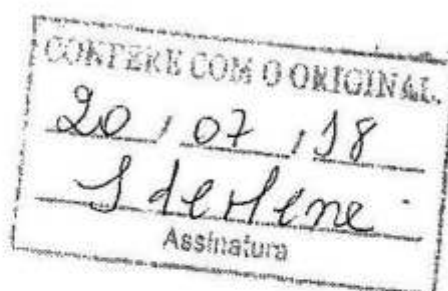 CONFERE COM O ORIGINAL
20 / 07 / 18
Assinatura